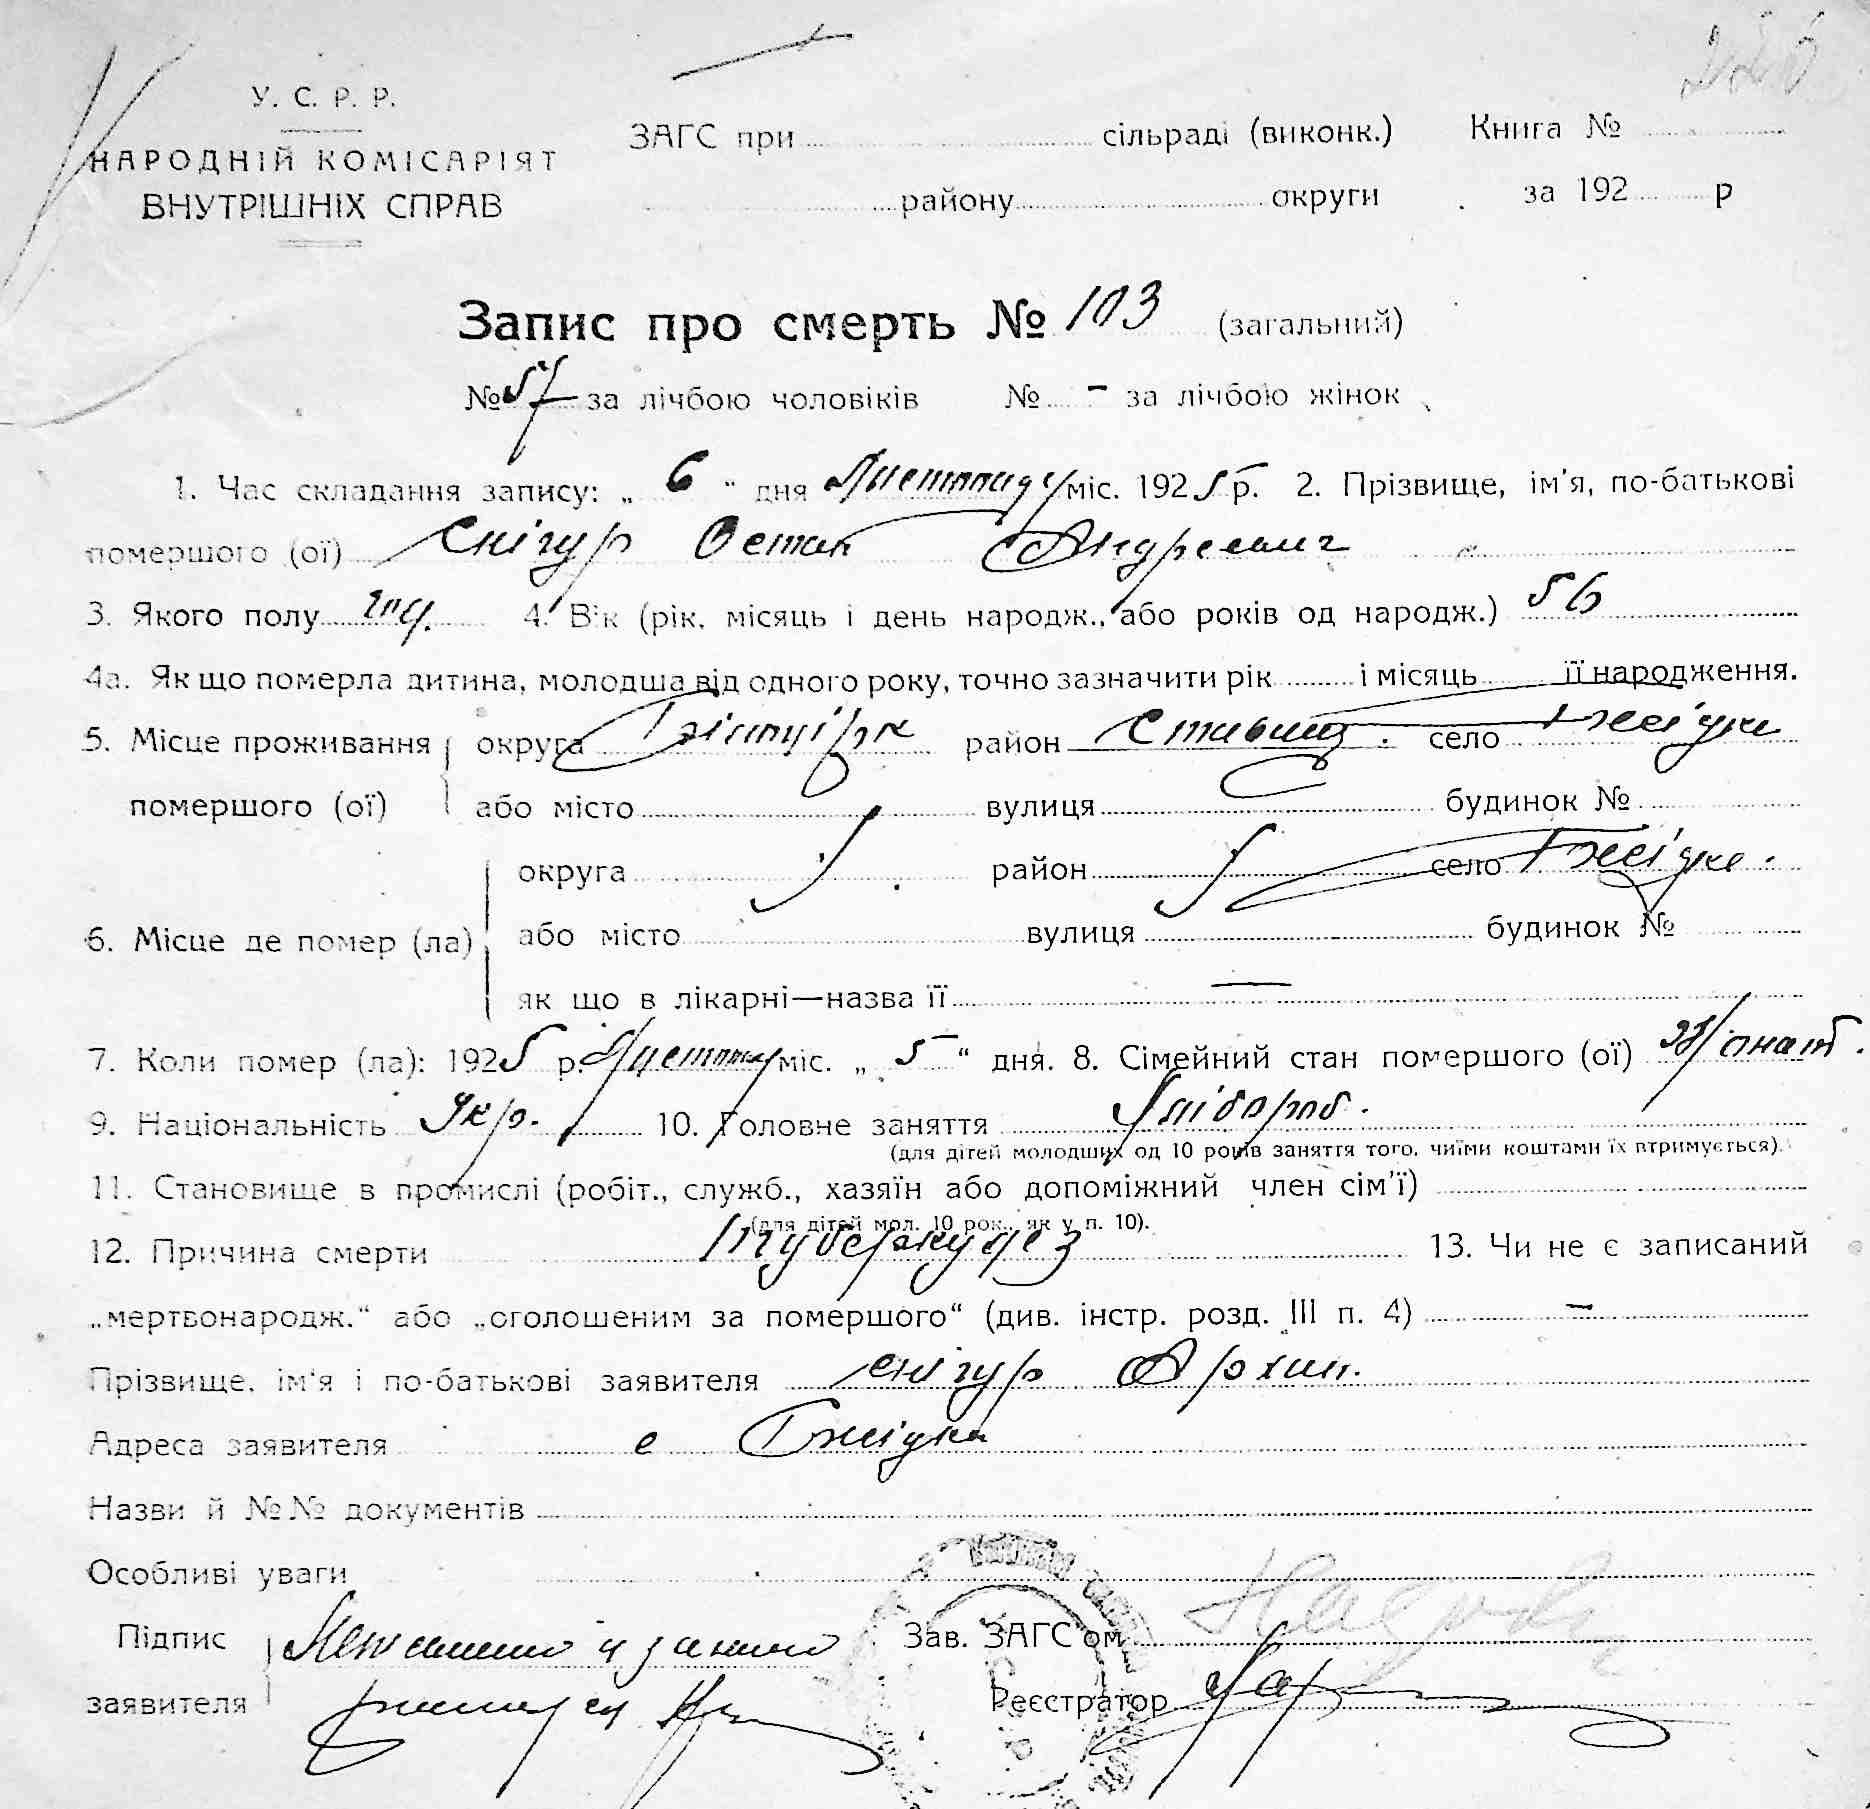 226
У. С. Р. Р.
НАРОДНІЙ КОМІСАРІЯТ
ВНУТРІШНІХ СПРАВ
ЗАГС при сільраді (виконк.) Книга №
району округи за 192 р
Запис про смерть № 103 (загальний)
№ 57 за лічбою чоловіків № – за лічбою жінок
1. Час складання запису: „ 6 “ дня Листопаду міс. 1925 р. 2. Прізвище, ім'я, по-батькові
помершого (ої) Снігур Остап Андреевич
3. Якого полу чол. 4. Вік (рік, місяць і день народж., або років од народж.) 56
4а. Як що померла дитина, молодша від одного року, точно зазначити рік і місяць її народження.
5. Місце проживання округа район Ставищ. село Гжидки
помершого (ої) або місто вулиця будинок №
округа район село Гжидки.
6. Місце де помер (ла) або місто вулиця будинок №
як що в лікарні—назва її –
7. Коли помер (ла): 1925 р. Листопад міс. „ 5 “ дня. 8. Сімейний стан помершого (ої) жонат.
9. Національність Укр. 10. Головне заняття Хлібороб.
(для дітей молодших од 10 років заняття того, чиїми коштами їх втримується).
11. Становище в промислі (робіт., служб., хазяїн або допоміжний член сім'ї)
(для дітей мол. 10 рок., як у п. 10).
12. Причина смерти туберкулез 13. Чи не є записаний
„мертвонародж.“ або „оголошеним за помершого“ (див. інстр. розд. III п. 4) –
Прізвище, ім'я і по-батькові заявителя Снігур Архип.
Адреса заявителя с Гжидки
Назви й №№ документів
Особливі уваги
Підпис Зав. ЗАГС'ом
заявителя Реєстратор